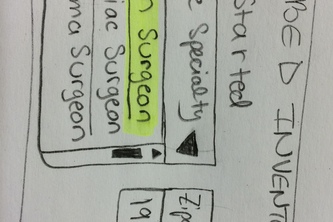 OED INVENT
Started
e Specialty
n Surgeon
iac Surgeon
ma Surgeon
Zip
19